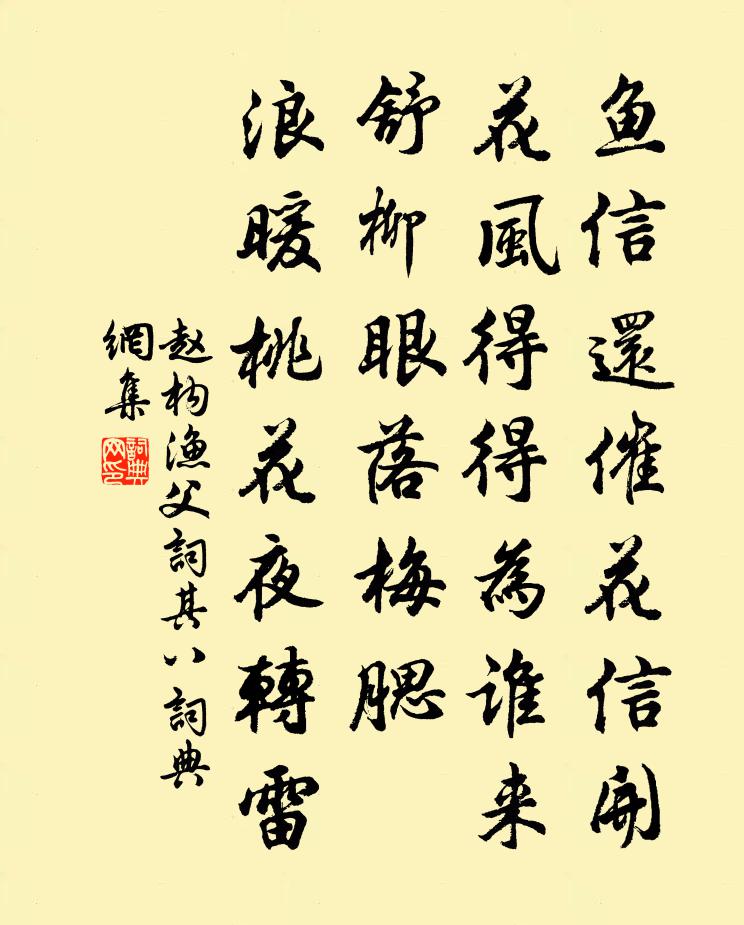 鱼信還催花信開
花風得得為谁来
舒柳眼落梅腮
浪暖桃花夜轉雷
赵构漁父詞其八詞典
網集
詞典
网印